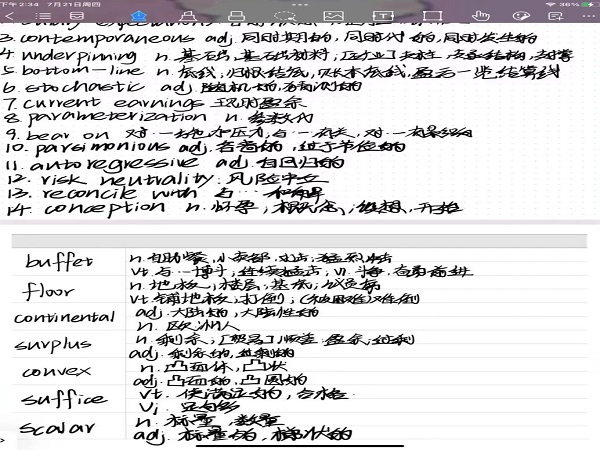 下午2:34 7月21日周四
36%
3. contemporaneous adj. 同时期的, 同时代的, 同时发生的
4. underpinning n. 基石, 基础材料, 支柱, 支承结构, 支撑
5. bottom-line n. 底线, 归根结底,
6. stochastic adj. 随机的,
7. current earnings 现时盈余
8. parameterization n. 参数化
9. bear on 对…施加压力, 与…有关, 对…有影响
10. parsimonious adj. 吝啬的, 过于节俭的
11. autoregressive adj. 自回归的
12. risk neutrality. 风险中立
13. reconcile with 与…和解
14. conception n. 怀孕, 概念, 构想, 开始
buffet n. 自助餐, 小卖部,
vt. 与…搏斗, 连续猛击, vi. 斗争, 奋勇前进
floor n. 地板, 楼层, 基底, 议员席
vt. 铺地板, 打倒, 难倒
continental adj. 大陆的, 大陆性的
n. 欧洲人
surplus n. 剩余, [贸易]顺差, 盈余, 过剩
adj. 剩余的, 过剩的
convex n. 凸面体, 凸状
adj. 凸面的, 凸圆的
suffice vt. 使满足的, 合格
vi. 足够多
scalar n. 标量, 数量
adj. 标量的, 梯状的